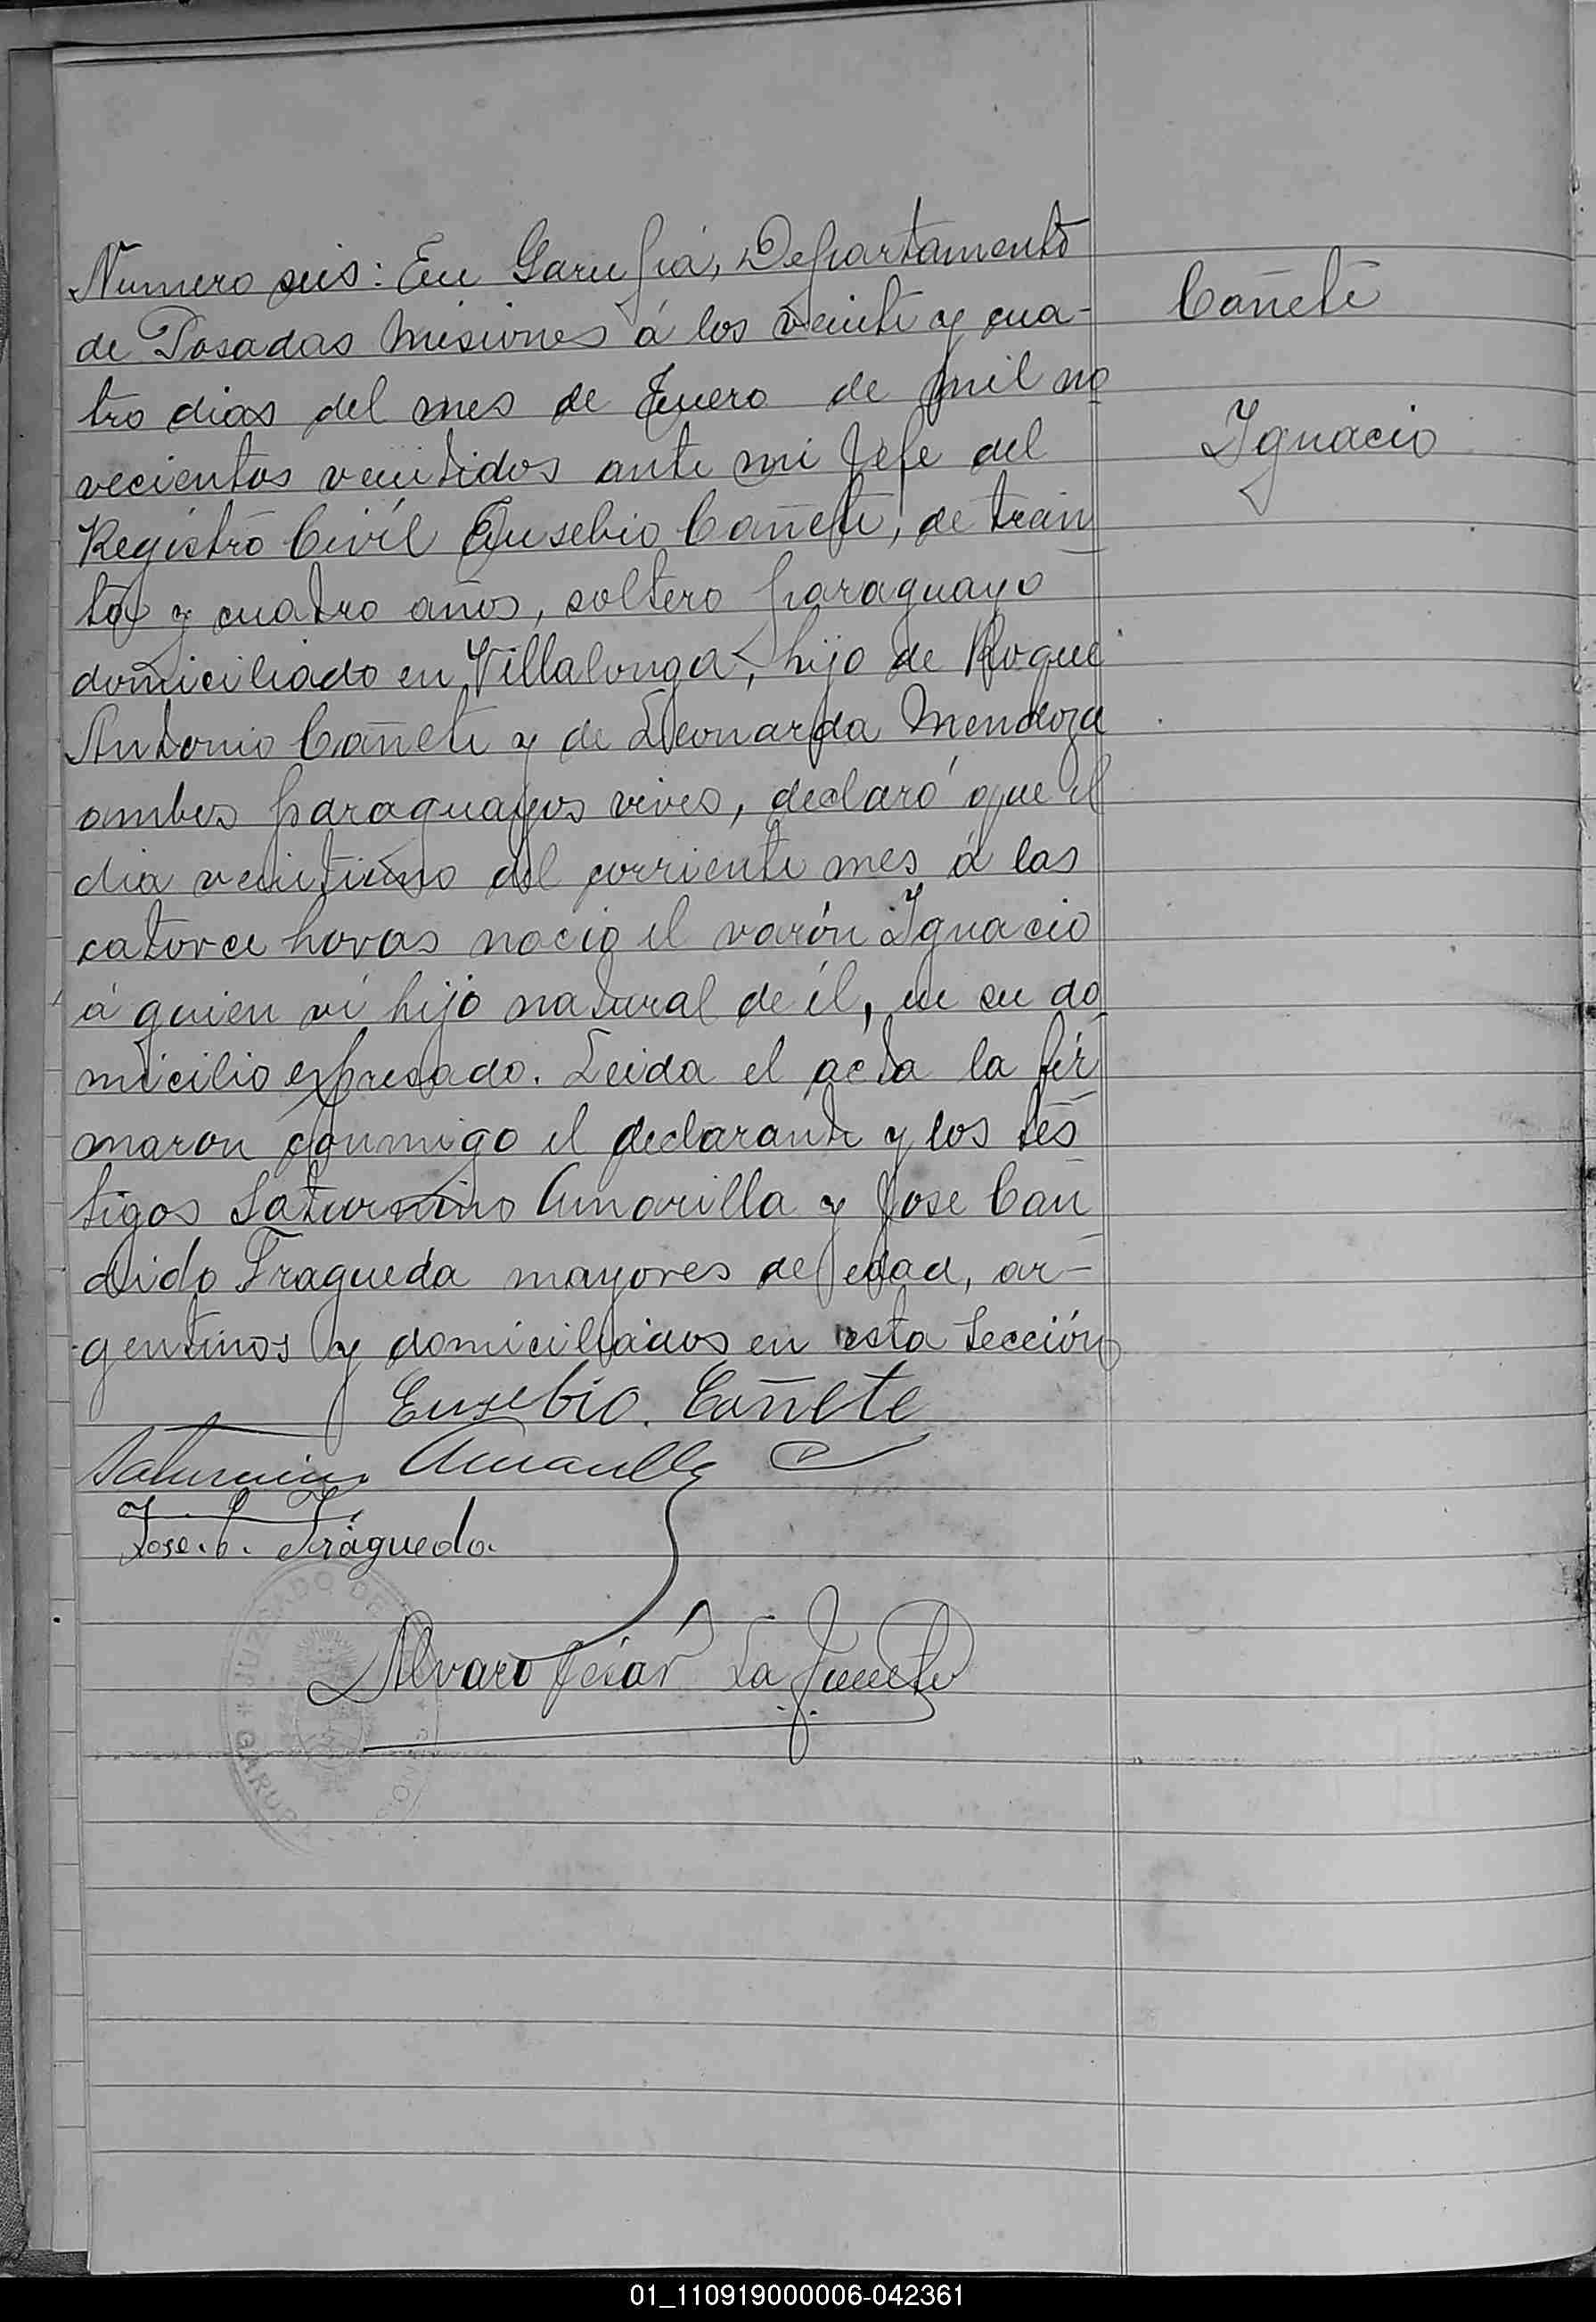 Numero seis: En Garupá, Departamento
de Posadas Misiones á los veinte y cua-
tro dias del mes de Enero de mil no
vecientos veintidos ante mi Jefe del
Registro Civil Eusebio Cañete, de trein
ta y cuatro años, soltero paraguayo
domiciliado en Villalonga, hijo de Roque
Antonio Cañete y de Leonarda Mendoza
ambos paraguayos vivos, declaró que el
dia veintiuno del corriente mes á las
catorce horas nacio el varón Ignacio
á quien ví hijo natural de él, en su do
micilio expresado. Leida el acta la fir
maron conmigo el declarante y los tes
tigos Saturnino Amarilla y Jose Can
dido Fragueda mayores de edad, ar-
gentinos y domiciliados en esta Sección
Cañete
Ignacio
Eusebio Cañete
Saturnino Amarilla
Jose. C. Fragueda.
Alvaro César La Fuente
JUZGADO DE
GARUP
01_110919000006-042361